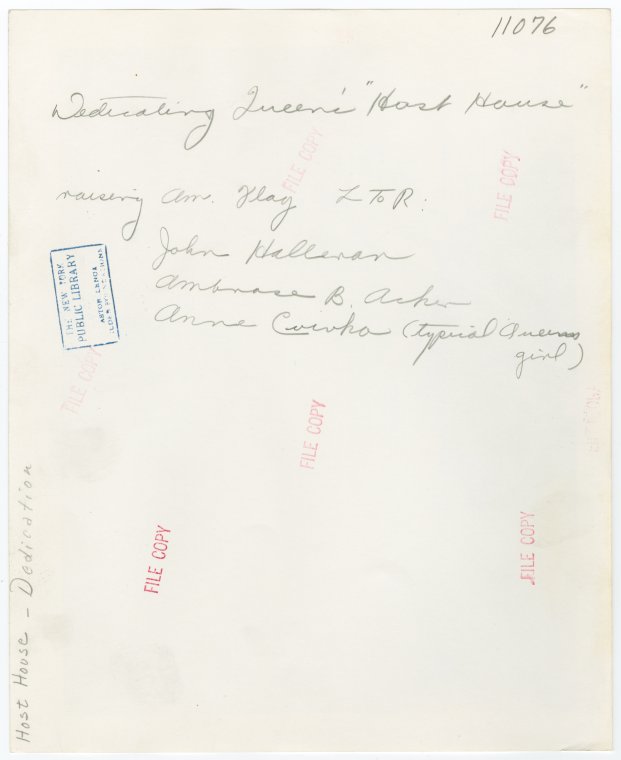 11076
Dedicating Queen's "Host House"
raising Am. Flag L To R.
John Halleran
Ambrose B. Acker
Anne (typical Queens
girl)
THE NEW YORK
PUBLIC LIBRARY
ASTOR LENOX
TILDEN FOUNDATIONS
FILE COPY
FILE COPY
FILE COPY
FILE COPY
FILE COPY
FILE COPY
Host House - Dedication